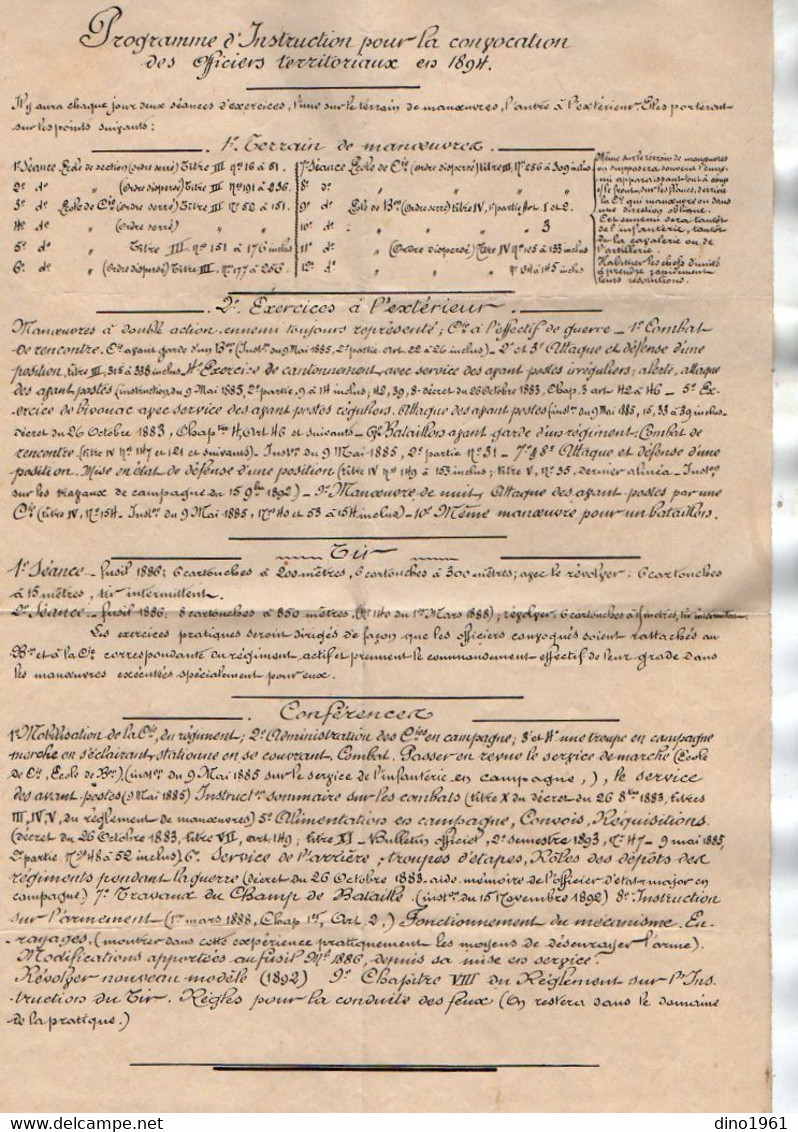 Programme d'Instruction pour la convocation
des Officiers territoriaux en 1894.
Il y aura chaque jour deux séances d'exercices, l'une sur le terrain de manœuvres, l'autre à l'extérieur. Elles porteront
sur les points suivants :
1º Terrain de manœuvres.
1º Séance École de section (ordre serré) Titre III nº 16 à 51.
2º dº " (Ordre dispersé) Titre III nº 191 à 256.
3º dº École de Cie (ordre serré) Titre III nº 52 à 151.
4º dº " (Ordre serré) "
5º dº " Titre III nº 151 à 176 inclus
6º dº " (Ordre dispersé) Titre III, nº 177 à 256.
7º Séance École de Cie (Ordre dispersé) titre III, nº 256 à 309 inclus
8º dº " " "
9º dº École de Bon (Ordre serré) titre IV, 1º partie Art. 1 et 2.
10º dº " " " 3
11º dº " (Ordre dispersé) Titre IV nº 125 à 133 inclus
12º dº " " " nº 134 à 145 inclus
Même sur le terrain de manœuvres
on supposera souvent l'enne-
mi apparaissant tout à coup
sur le front, sur les flancs, derrière
la Cie qui manœuvre ou dans
une direction oblique.
Cet ennemi sera tantôt
de l'infanterie, tantôt
de la cavalerie ou de
l'artillerie.
Habituer les chefs d'unités
à prendre rapidement
leurs résolutions.
2º Exercices à l'extérieur.
Manœuvres à double action, ennemi toujours représenté ; Cie à l'effectif de guerre _ 1º Combat
de rencontre. Cie avant garde d'un Bon (Inston du 9 Mai 1885, 2º partie, art. 22 à 26 inclus) _ 2º et 3º Attaque et défense d'une
position, titre III, 315 à 338 inclus 4º Exercice de cantonnement avec service des avant postes irréguliers ; alerte, attaque
des avant postes (instruction du 9 Mai 1885, 2º partie, 9 à 14 inclus ; 42, 39, 8 - décret du 26 Octobre 1883, Chap. 3 art 42 à 46 _ 5º Ex-
ercice de bivouac avec service des avant postes réguliers. Attaque des avant postes (inston du 9 Mai 1885, 15, 33 à 39 inclus
décret du 26 Octobre 1883, Chap tre 4, Art 46 et suivants _ 6º Bataillon avant garde d'un régiment. Combat de
rencontre (titre IV nº 117 et 121 et suivants) _ Inston du 9 Mai 1885, 2º partie nº 31 _ 7º & 8º Attaque et défense d'une
position. Mise en état de défense d'une position (titre IV nº 149 à 153 inclus ; titre V, nº 35, dernier alinéa _ Inston
sur les travaux de campagne du 15 9bre 1892) _ 9º Manœuvre de nuit, Attaque des avant-postes par une
Cie (titre IV, nº 154 - Inston du 9 Mai 1885, nº 40 et 53 à 154 inclus) _ 10º Même manœuvre pour un bataillon.
Tir
1º Séance _ fusil 1886 : 6 cartouches à 200 mètres, 6 cartouches à 300 mètres ; avec le révolver : 6 cartouches
à 15 mètres, tir intermittent.
2º Séance _ fusil 1886 : 8 cartouches à 850 mètres, (nº 140 du 1er Mars 1888) ; révolver : 6 cartouches à mètres, tir intermittent
Les exercices pratiques seront dirigés de façon que les officiers convoqués soient rattachés au
Bon et à la Cie correspondante du régiment actif et prennent le commandement effectif de leur grade dans
les manœuvres exécutées spécialement pour eux.
Conférences
1º Mobilisation de la Cie, du régiment ; 2º Administration des Cies en campagne ; 3º et 4º une troupe en campagne
marche en s'éclairant, stationne en se couvrant. Combat. Passer en revue le service de marche (École
de Cie, École de Bon), (inston du 9 Mai 1885 sur le service de l'infanterie en campagne,), le service
des avant-postes (9 Mai 1885) Instruction sommaire sur les combats (titre X du décret du 26 8bre 1883, titres
III, IV, V, du règlement de manœuvres) 5º Alimentation en campagne, Convois, Réquisitions.
(décret du 26 Octobre 1883, titre VII, art 149 ; titre XI _ Bulletin officiel, 2º semestre 1893, nº 47 _ 9 mai 1885,
2º partie nos 48 à 52 inclus). 6º Service de l'arrière, troupes d'étapes, Rôles des dépôts des
régiments pendant la guerre (décret du 26 Octobre 1883 - aide-mémoire de l'officier d'état major en
campagne) 7º Travaux du Champ de Bataille (inston du 15 Novembre 1892) 8º Instruction
sur l'armement (1er mars 1888, Chap 1er, Art. 2,) Fonctionnement du mécanisme. En-
rayages, (montrer dans cette expérience pratiquement les moyens de désenrayer l'arme).
Modifications apportées au fusil Mle 1886, depuis sa mise en service.
Révolver nouveau modèle (1892) 9º Chapitre VIII du Règlement sur l'Ins-
truction du Tir. Règles pour la conduite des feux (On restera dans le domaine
de la pratique.)
delcampe.net
dino1961